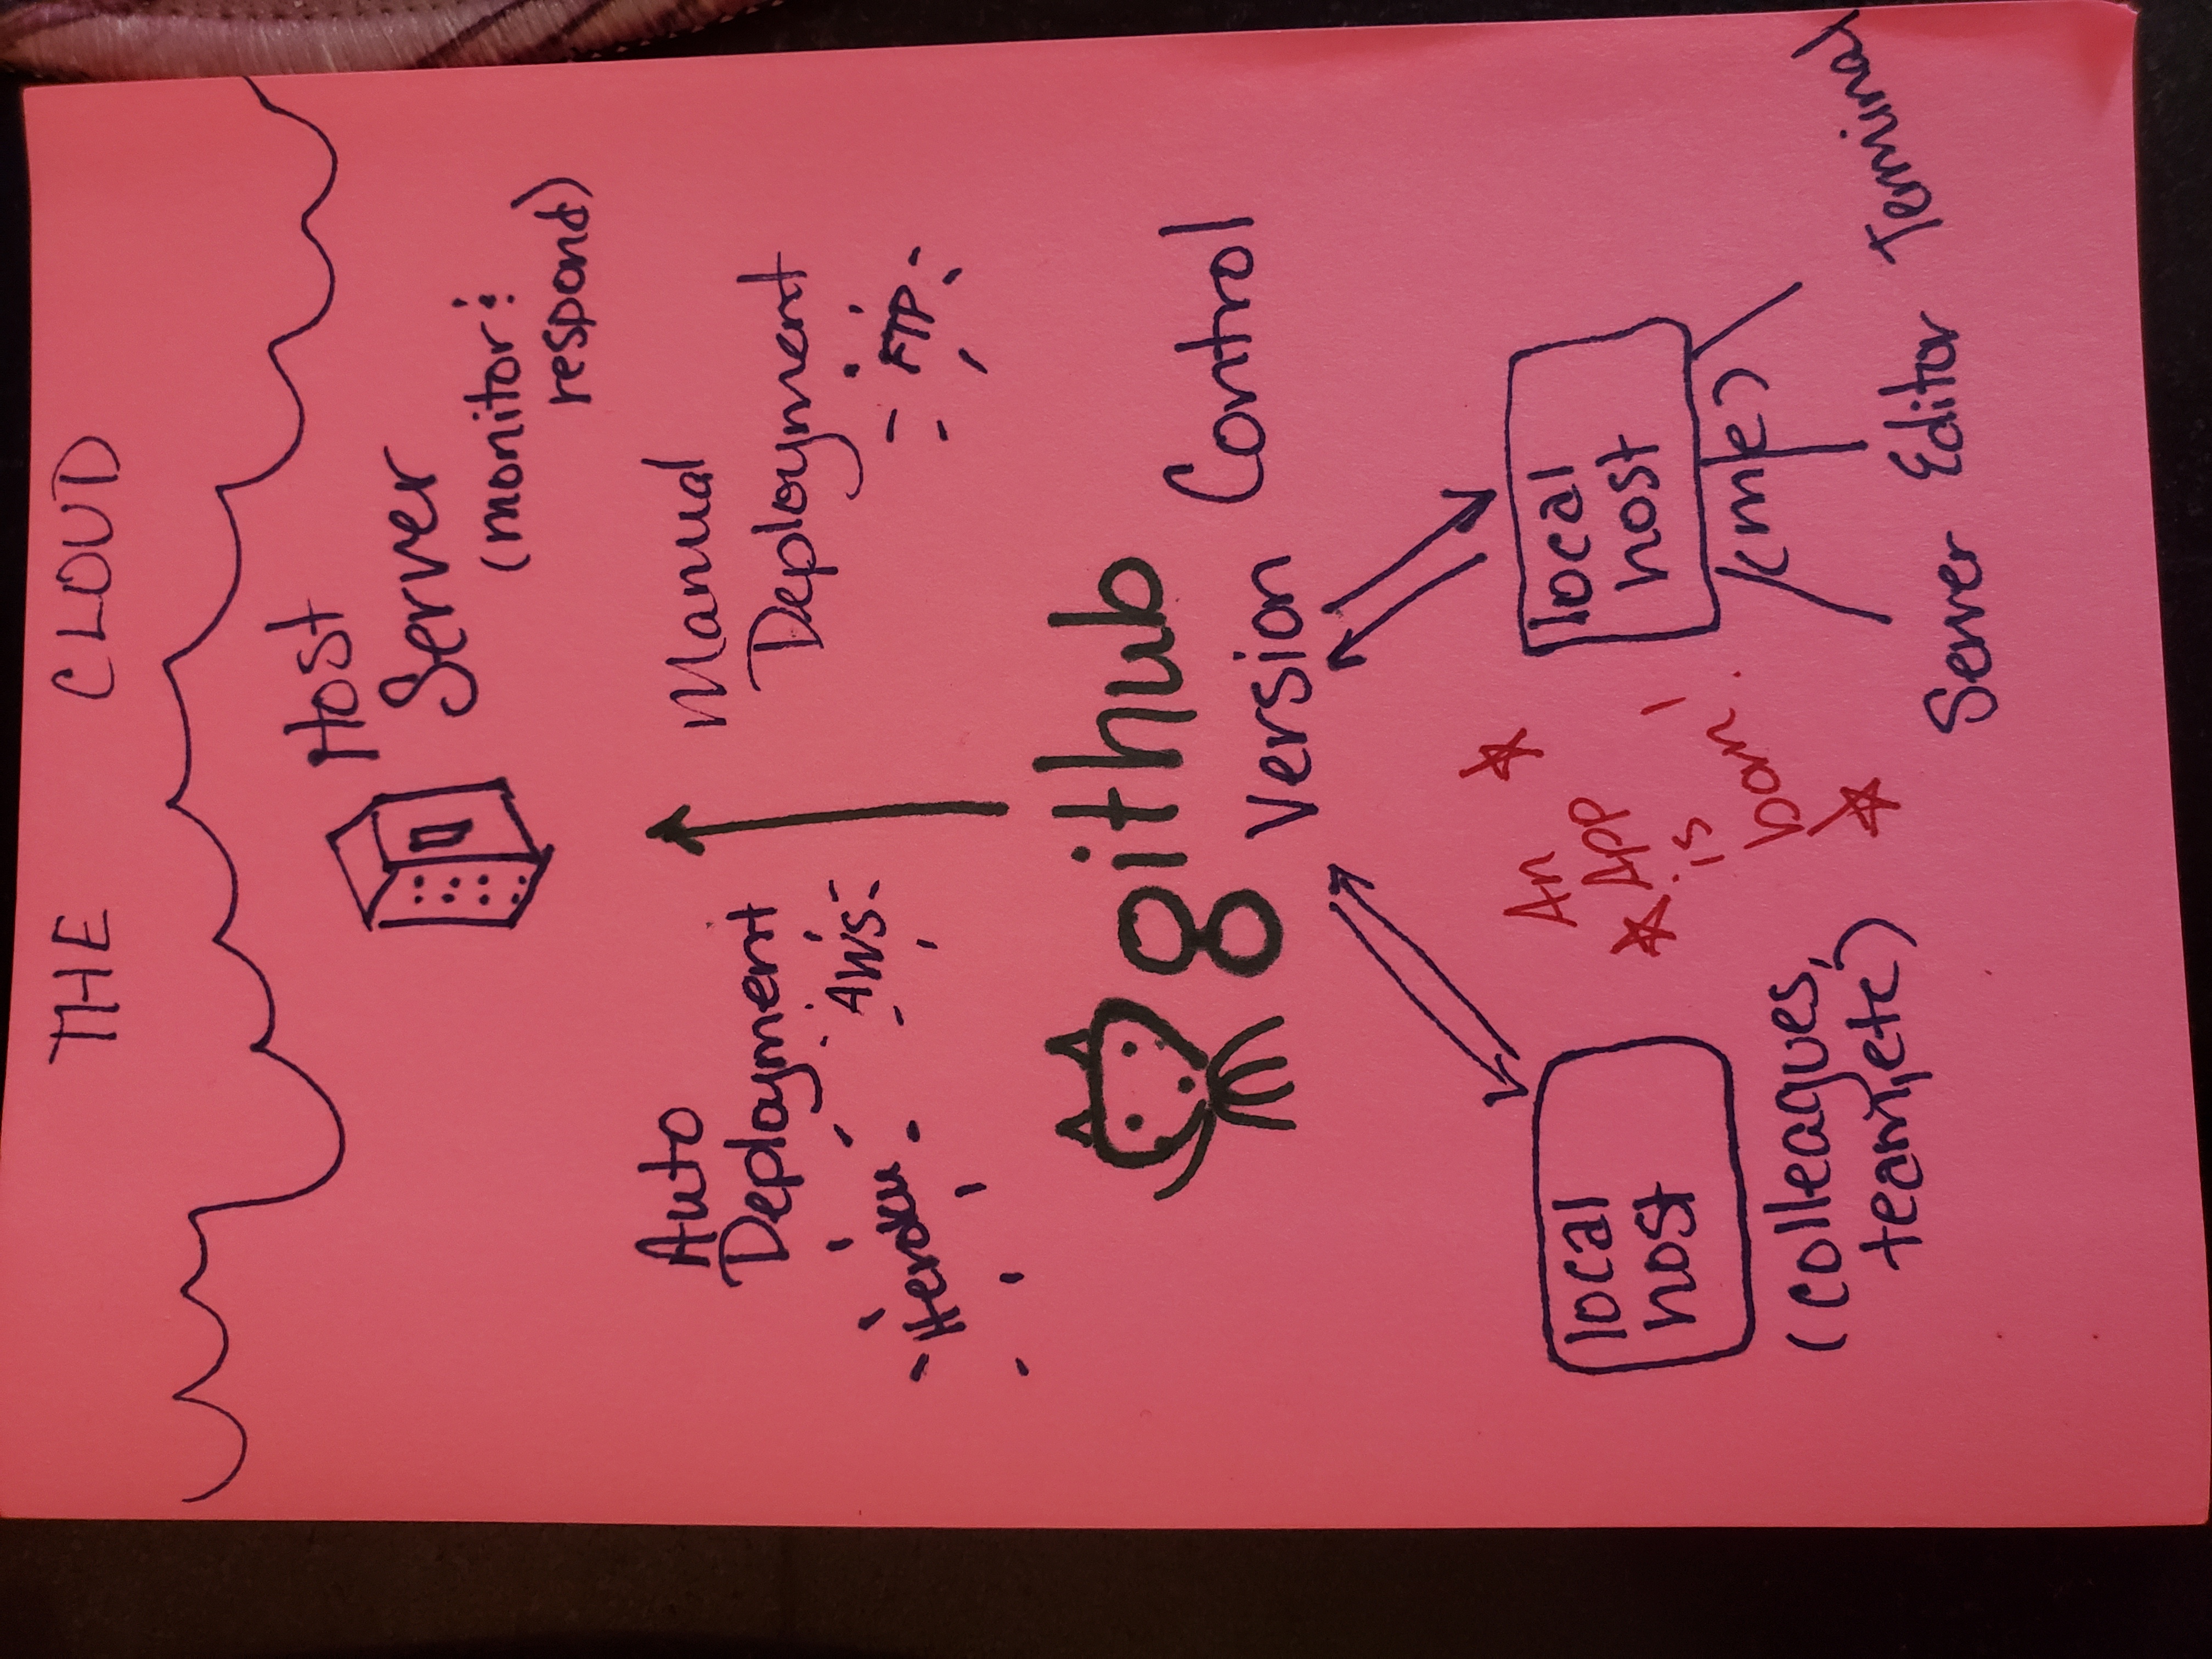 THE CLOUD
Host
Server
(monitor &
respond)
Auto
Deployment
Heroku
AWS
Manual
Deployment
FTP
github
Version Control
local
host
(colleagues,
team, etc)
An
App
is
born!
local
host
(me)
Server Editor Terminal